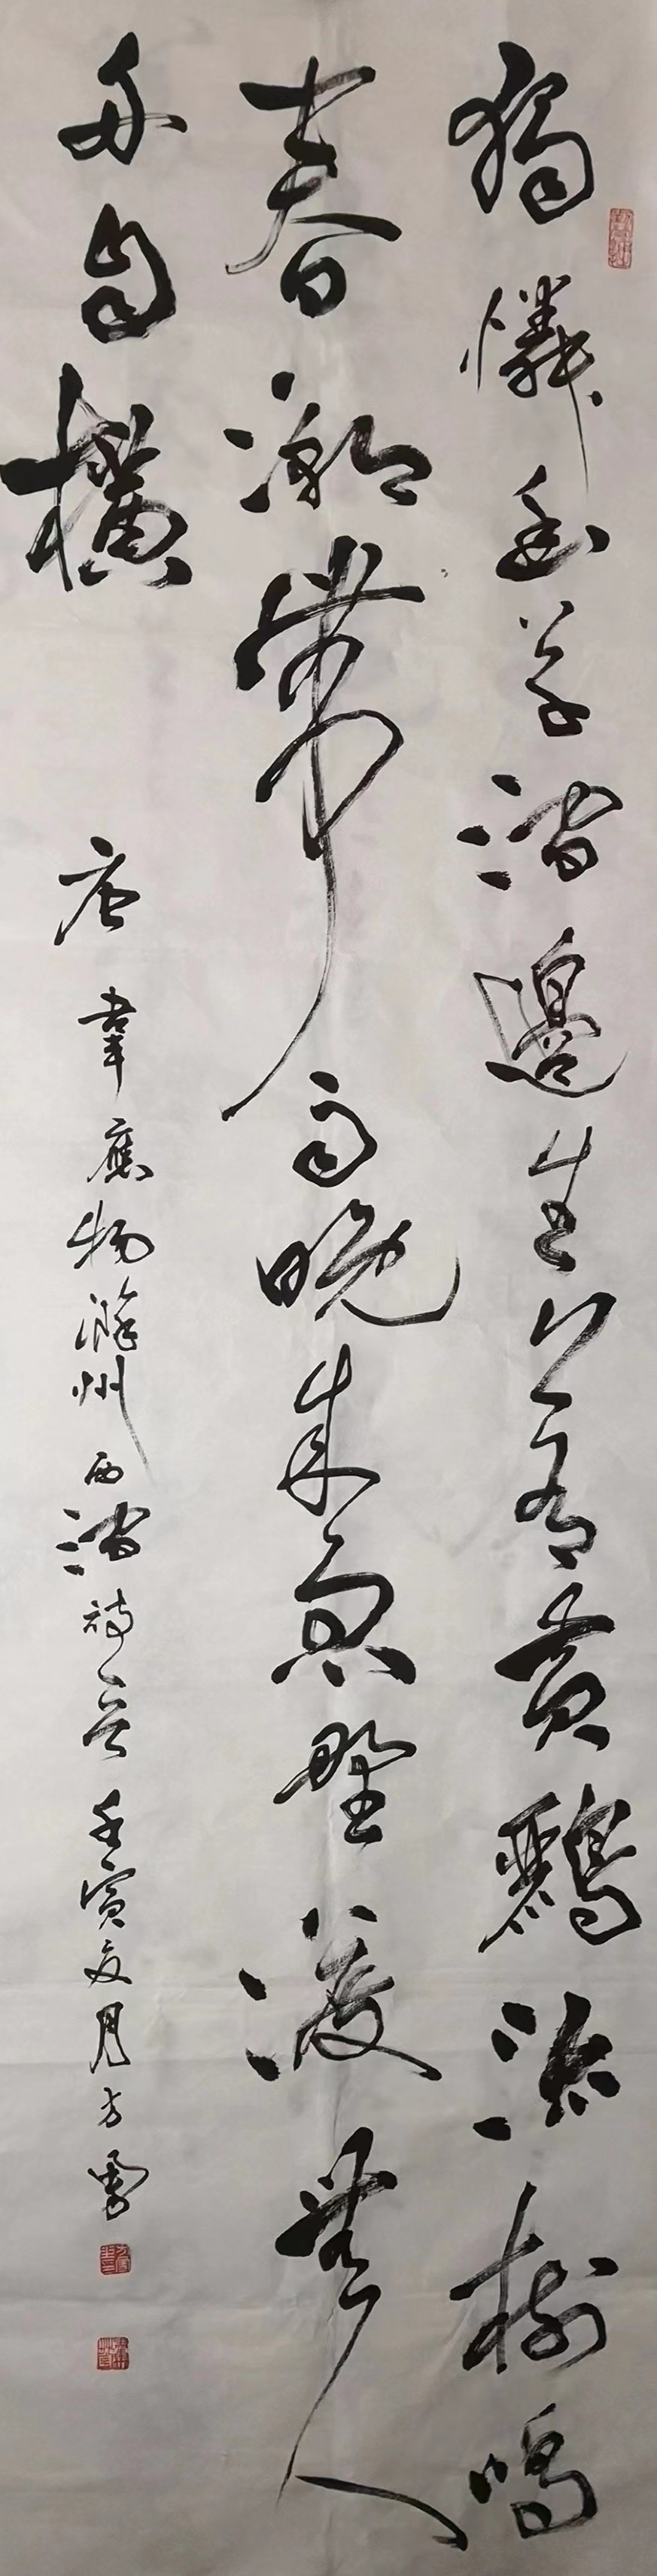 獨憐幽草澗邊生上有黃鸝深樹鳴
春潮帶雨晚來急野渡無人
舟自橫
唐韋應物滁州西澗詩壬寅夏月方勇